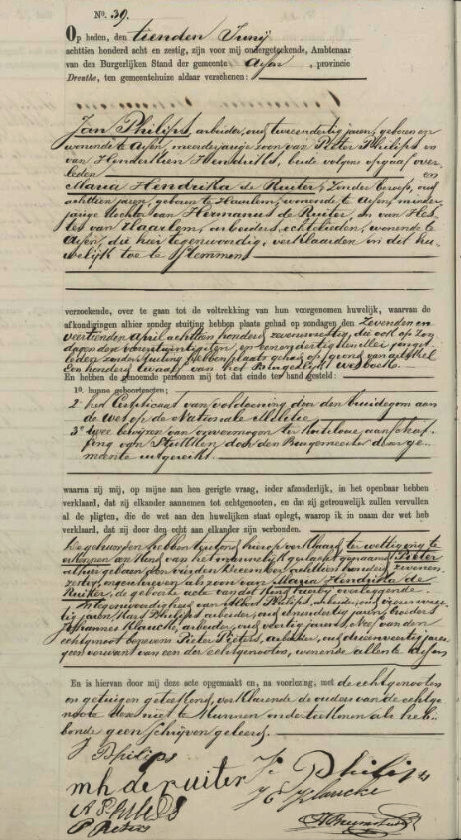 No. 39.
Op heden, den tienden Junij
achttien honderd acht en zestig, zijn voor mij ondergeteekende, Ambtenaar
van den Burgerlijken Stand der gemeente Assen, provincie
Drenthe, ten gemeentehuize aldaar verschenen:
Jan Philips, arbeider, oud twee en dertig jaren, geboren en
wonende te Assen, meerderjarige zoon van Pieter Philips en
van Henderkien Hendriks, beide volgens opgaaf over-
leden en
Maria Hendrika de Ruiter, zonder beroep, oud
achttien jaren, geboren te Haarlem, wonende te Assen, minder-
jarige dochter van Hermanus de Ruiter, en van Hes-
ter van Haarlem, arbeiders, echtelieden, wonende te
Assen, die hier tegenwoordig, verklaarden in dit hu-
welijk toe te stemmen
verzoekende, over te gaan tot de voltrekking van hun voorgenomen huwelijk, waarvan de
afkondigingen alhier zonder stuiting hebben plaats gehad op zondagen den zevenden en
veertienden April achttien honderd zeven en zestig, die ook op zon-
dagen den en een en dertigsten Mei jongst-
leden zonder stuiting hebben plaats gehad op grond van artikel
Een honderd twaalf van het Burgerlijk wetboek.
En hebben de genoemde personen mij tot dat einde ter hand gesteld:
1o. hunne geboorteacten;
2o het Certificaat van voldoening door den bruidegom aan
de wet op de Nationale Militie
3o twee bewijzen van onvermogen ter kostelooze aanschaf-
fing van stukken door den Burgemeester dezer ge-
meente uitgereikt.
waarna zij mij, op mijne aan hen gerigte vraag, ieder afzonderlijk, in het openbaar hebben
verklaard, dat zij elkander aannemen tot echtgenooten, en dat zij getrouwelijk zullen vervullen
al de pligten, die de wet aan den huwelijken staat oplegt, waarop ik in naam der wet heb
verklaard, dat zij door den echt aan elkander zijn verbonden.
De gehuwden hebben tijdens hierop verklaard te wettigen en te
erkennen een kind van het mannelijk geslacht genaamd Pieter
alhier geboren den achttien honderd zeven en
zestig, ingeschreven als zoon van Maria Hendrika de
Ruiter, de geboorte acte van het kind hierby overleggende.
In tegenwoordigheid van Albert Philips, arbeider, oud
tig jaren, Karst Philips arbeider, oud jaren, broeders
Johannes Klaucke, arbeider, oud veertig jaren, Neef van den
echtgenoot bogevens Pieter Pieters, arbeider, oud drie en veertig jaren,
geen verwant van een der echtgenooten, wonende allen te Assen
En is hiervan door mij deze acte opgemaakt en, na voorlezing, met de echtgenooten
en getuigen geteekend, verklarende de ouders van de echtge-
noote dezen niet te kunnen onderteekenen als heb-
bende geen schrijven geleerd.
J Philips
m h de ruiter K Philips
A Philips J E Klaucke
P Pieters